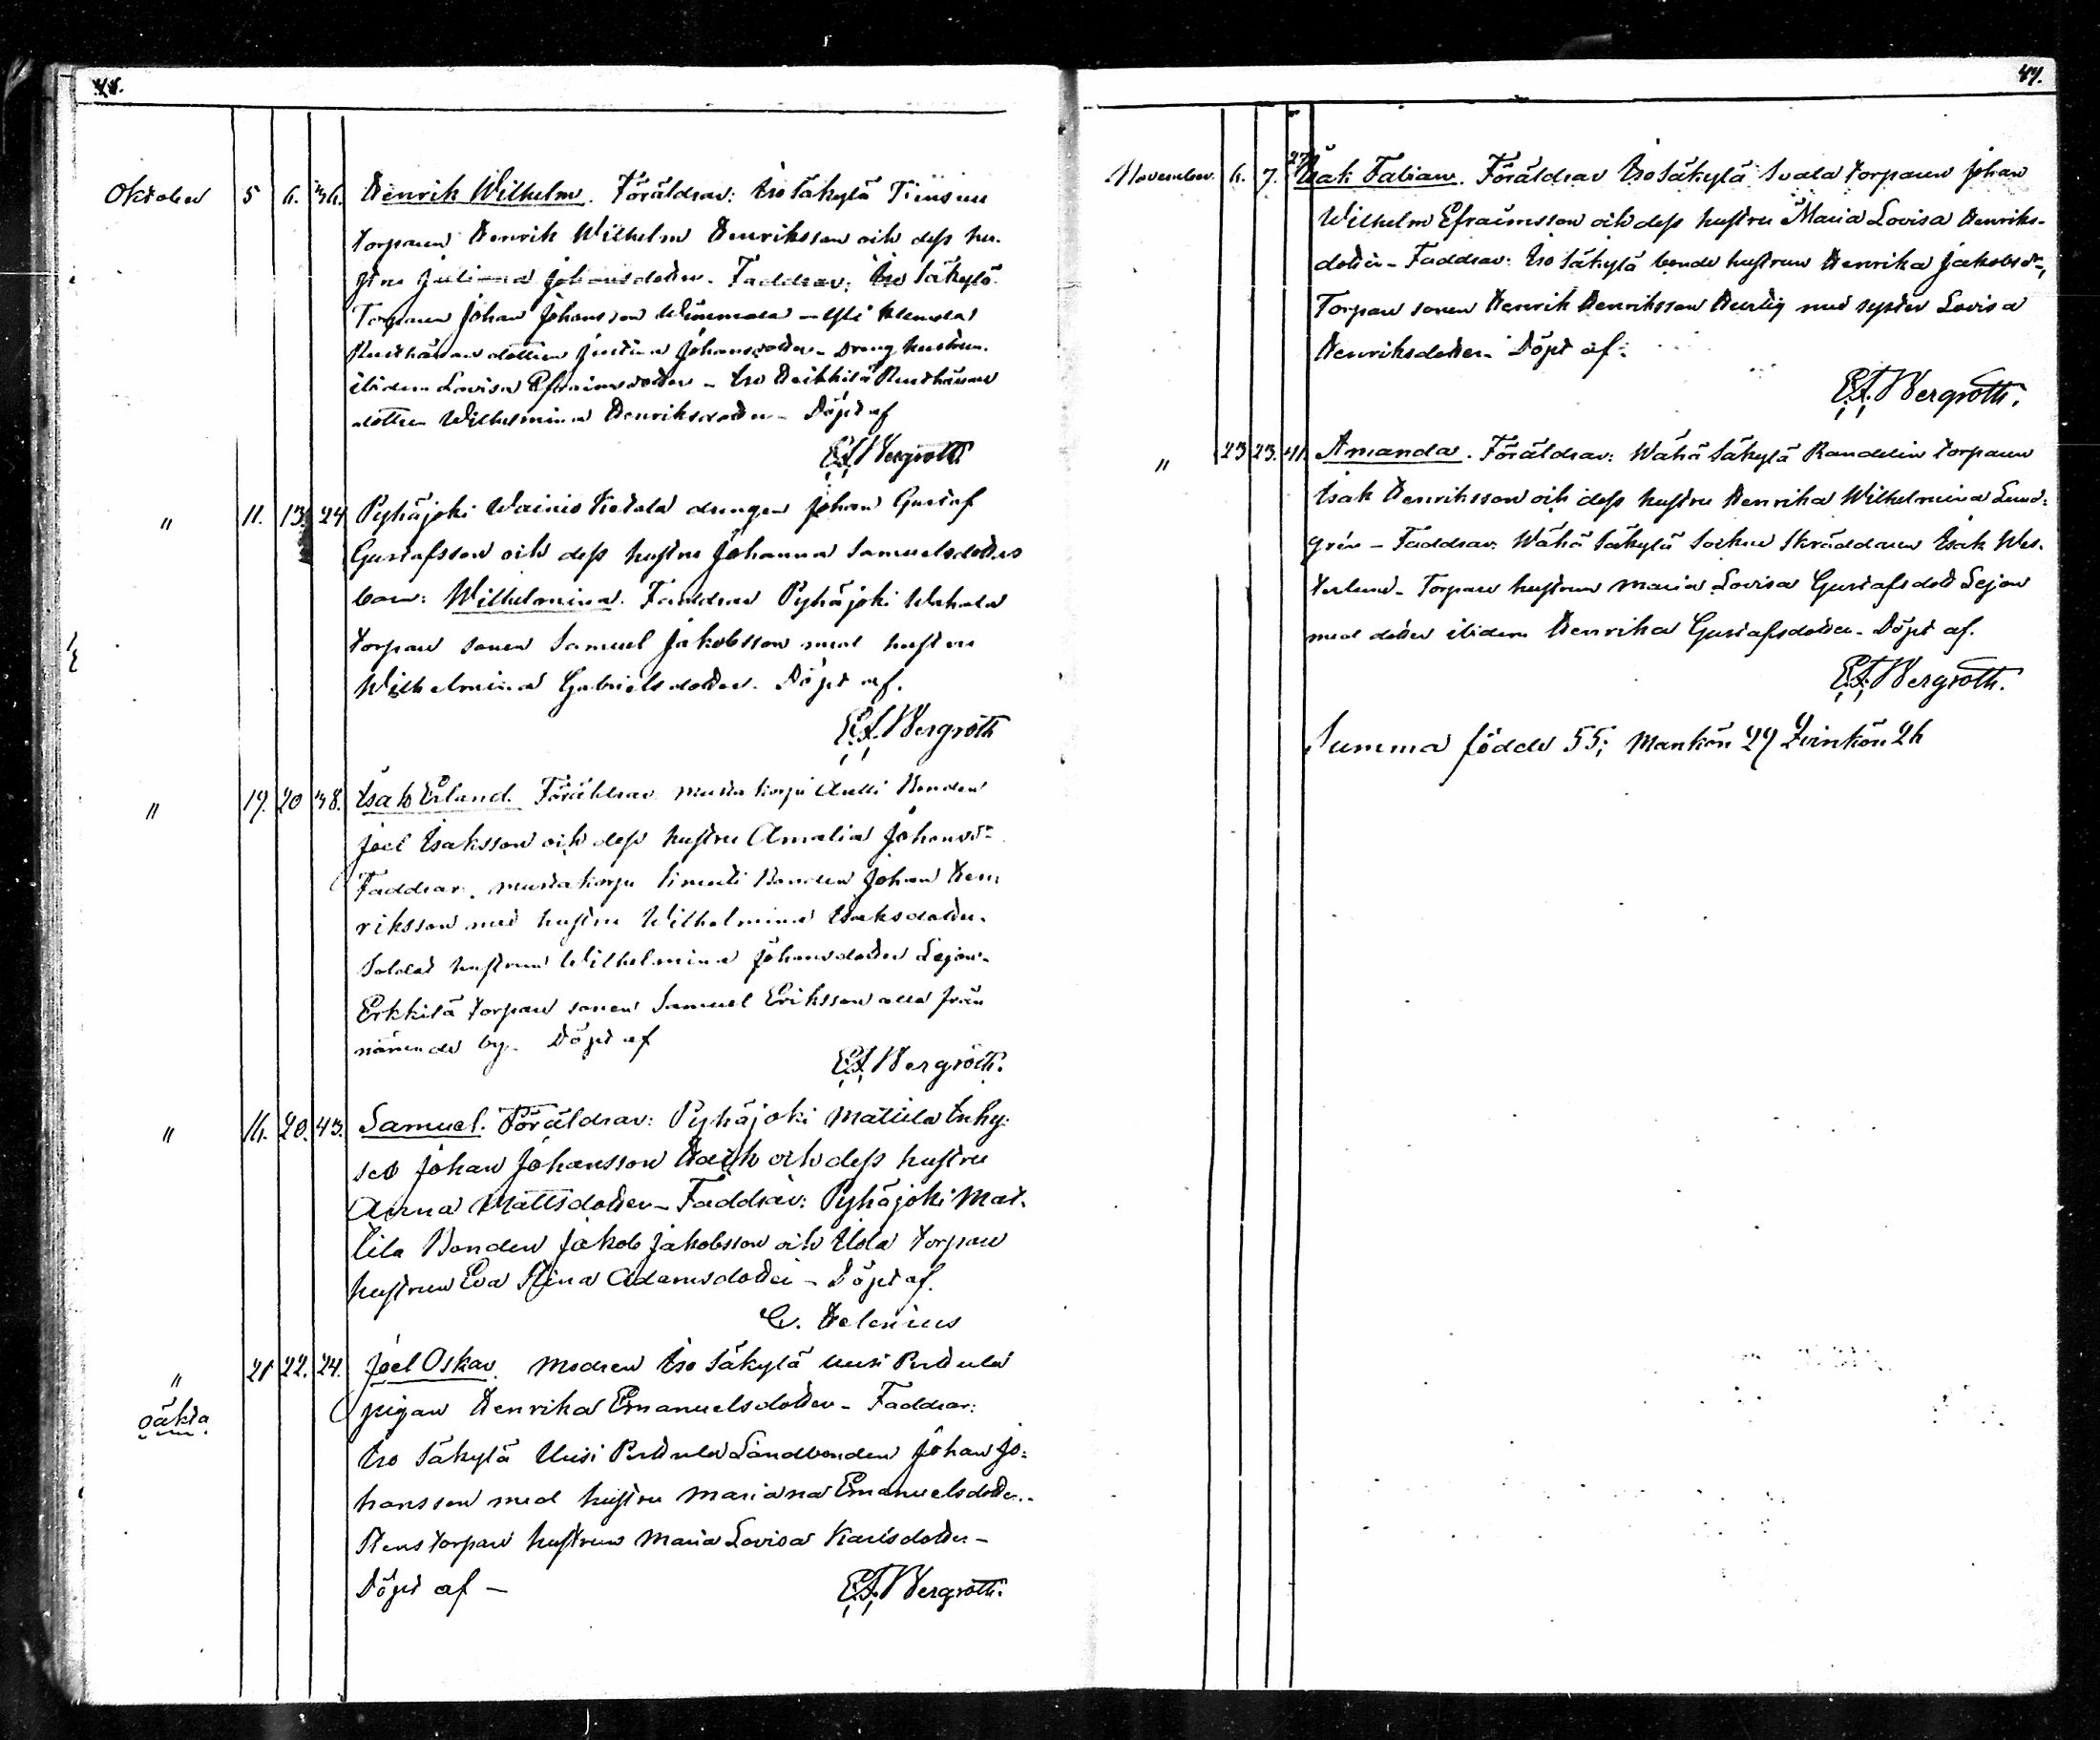 46.
Oktober 5 6. 36. Henrik Wilhelm. Föräldrar: Iso Säkylä Timsuu
torparen Henrik Wilhelm Henriksson och dess hu-
stru Juliana Johansdotter. Faddrar: Iso Säkylä
Torparen Johan Johansson Winnala
dottren Justina Johansdotter - Dreng hustrun
ibidem Lovisa Efraimsdotter - Iso Heikkilä Rusthållare
dottren Wilhelmina Henriksdotter - Döpt af
E.F. Bergroth
" 11. 13. 24 Pyhäjoki Wainio Kietala drengen Johan Gustaf
Gustafsson och dess hustru Johanna Samuelsdotters
barn: Wilhelmina. Faddrar Pyhäjoki Uotola
torpare sonen Samuel Jakobsson med hustru
Wilhelmina Gabrielsdotter. Döpt af.
E.F. Bergroth
" 19. 20 38. Isak Erland. Föräldrar Mustakorpi Antti Bonden
Joel Isaksson och dess hustru Amalia Johansdr
Faddrar. Mustakorpi Simuti Bonden Johan Hen-
riksson med hustru Wilhelmina Isaksdotter.
Soldat hustrun Wilhelmina Johansdotter Lejon.
Erkkilä torpare sonen Samuel Eriksson alla från
nämnde by. Döpt af
E.F. Bergroth.
" 16. 20. 43. Samuel. Föräldrar: Pyhäjoki Mattila Inhy-
ses Johan Johansson och dess hustru
Anna Mattsdotter - Faddrar: Pyhäjoki Mat-
tila Bonden Jakob Jakobsson och Uola torpare
hustrun Eva Stina Adamsdotter - Döpt af.
C. Helenius
" 21 22. 24. Joel Oskar. Modren Iso Säkylä Uusi Perttula
oäkta pigan Henrika Emanuelsdotter - Faddrar:
Iso Säkylä Uusi Perttula Landbonden Johan Jo-
hansson med hustru Mariana Emanuelsdotter -
Stens torpare hustrun Maria Lovisa Karlsdotter -
Döpt af - E.F. Bergroth.
47.
November. 6. 7. 27 Isak Fabian. Föräldrar Iso Säkylä Svala torparen Johan
Wilhelm Efraimsson och dess hustru Maria Lovisa Henriks-
dotter - Faddrar: Iso Säkylä bonde hustrun Henrika Jakobsdr,
Torpare sonen Henrik Henriksson Hurtig med syster Lovisa
Henriksdotter. Döpt af:
E.F. Bergroth.
" 23 23. 41. Amanda. Föräldrar: Wähä Säkylä Randelin torparen
Isak Henriksson och dess hustru Henrika Wilhelmina Lund-
gren - Faddrar: Wähä Säkylä Socken Skräddaren Isak Wes-
terlund - Torpare hustrun Maria Lovisa Gustafsdott Lejon
med dotter ibidem Henrika Gustafsdotter - Döpt af.
E.F. Bergroth.
Summa födde 55; Mankön 29 Qvinkön 26